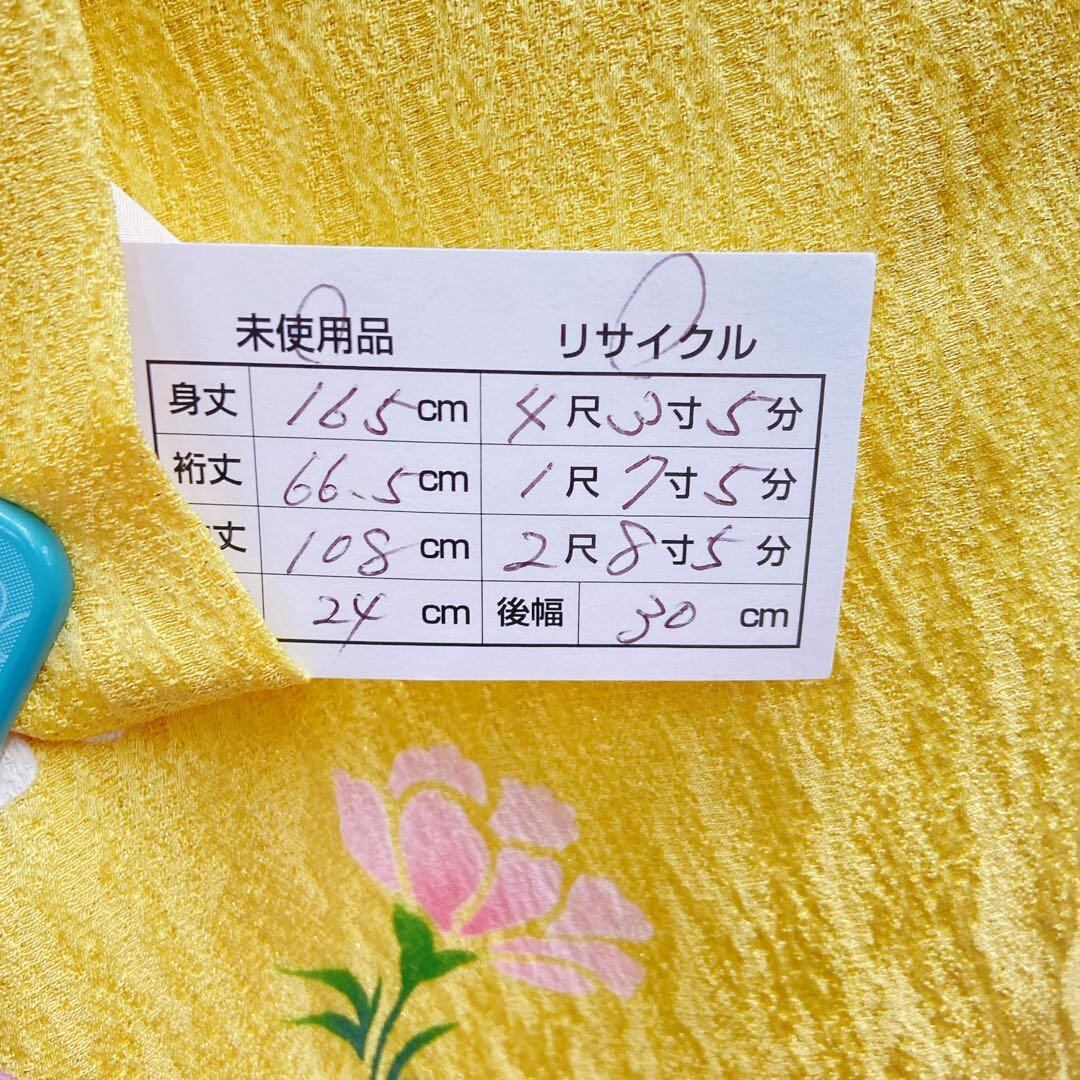 未使用品 リサイクル
身丈 165 cm 4尺3寸5分
裄丈 66.5 cm 1尺7寸5分
丈 108 cm 2尺8寸5分
24 cm 後幅 30 cm